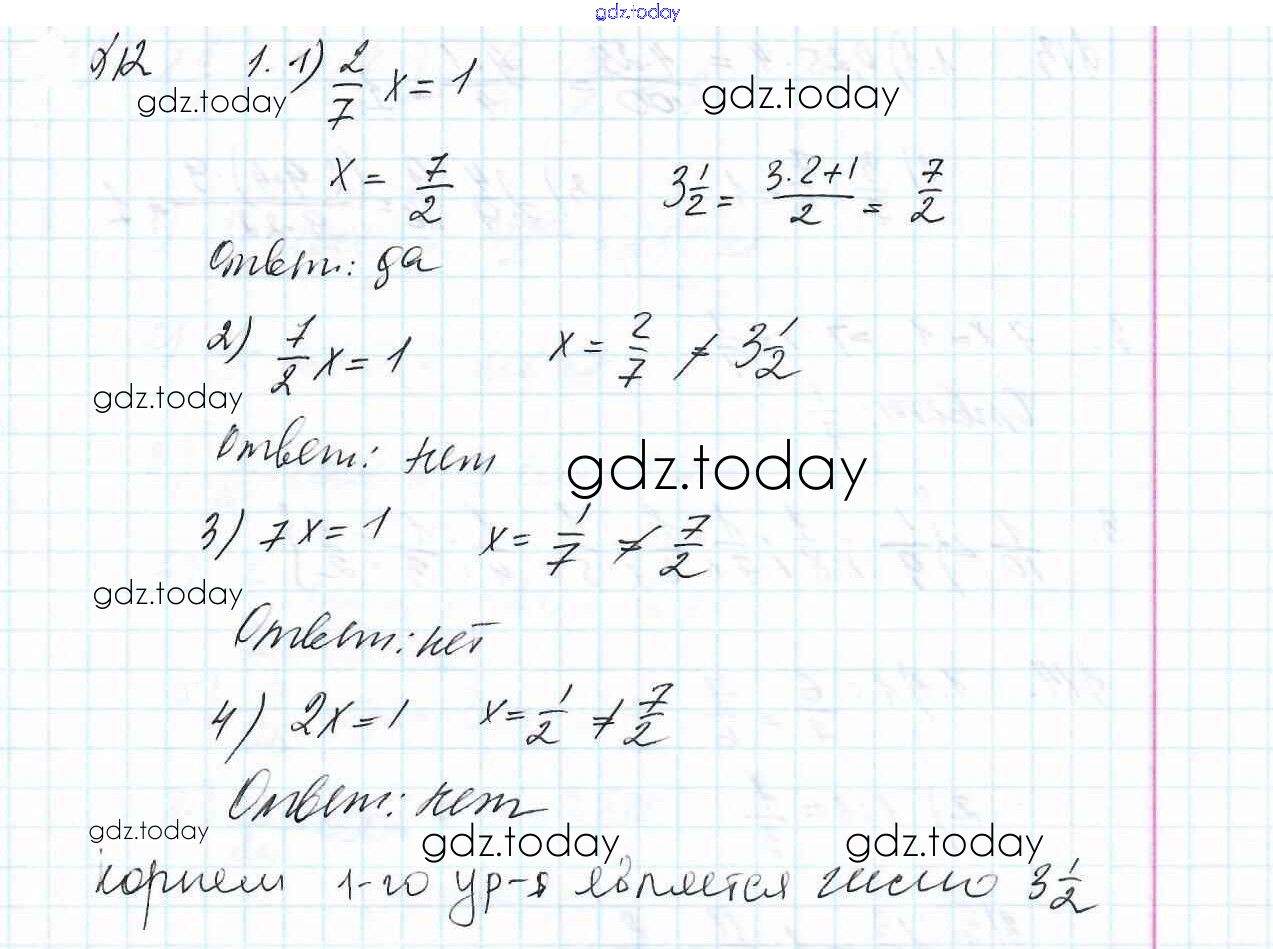 gdz.today
§12 1. 1) 2/7 x = 1
gdz.today gdz.today
x = 7/2 3 1/2 = (3·2+1)/2 = 7/2
Ответ: да
2) 7/2 x = 1 x = 2/7 ≠ 3 1/2
gdz.today
Ответ: нет gdz.today
3) 7x = 1 x = 1/7 ≠ 7/2
gdz.today
Ответ: нет
4) 2x = 1 x = 1/2 ≠ 7/2
Ответ: нет
gdz.today gdz.today gdz.today
корнем 1-го ур-я является число 3 1/2